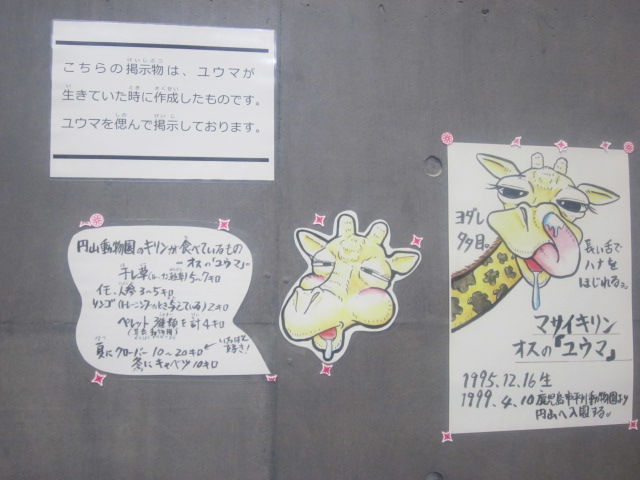 こちらの掲示物は、ユウマが
生きていた時に作成したものです。
ユウマを偲んで掲示しております。
円山動物園のキリンが食べているもの
ーオスの「ユウマ」ー
干し草 5〜7キロ
イモ、人参 3〜5キロ
リンゴ(トレーニングのとき与えている) 2キロ
ペレット 3種類を計4キロ
(草食動物用)
夏にクローバー 10〜20キロ
いちばん好き!
冬にキャベツ 10キロ
ヨダレ
タタ目。
長い舌で
ハナを
ほじれる。
マサイキリン
オスの「ユウマ」
1995.12.16生
1999.4.10 鹿児島市平川動物園より
円山へ入園する。